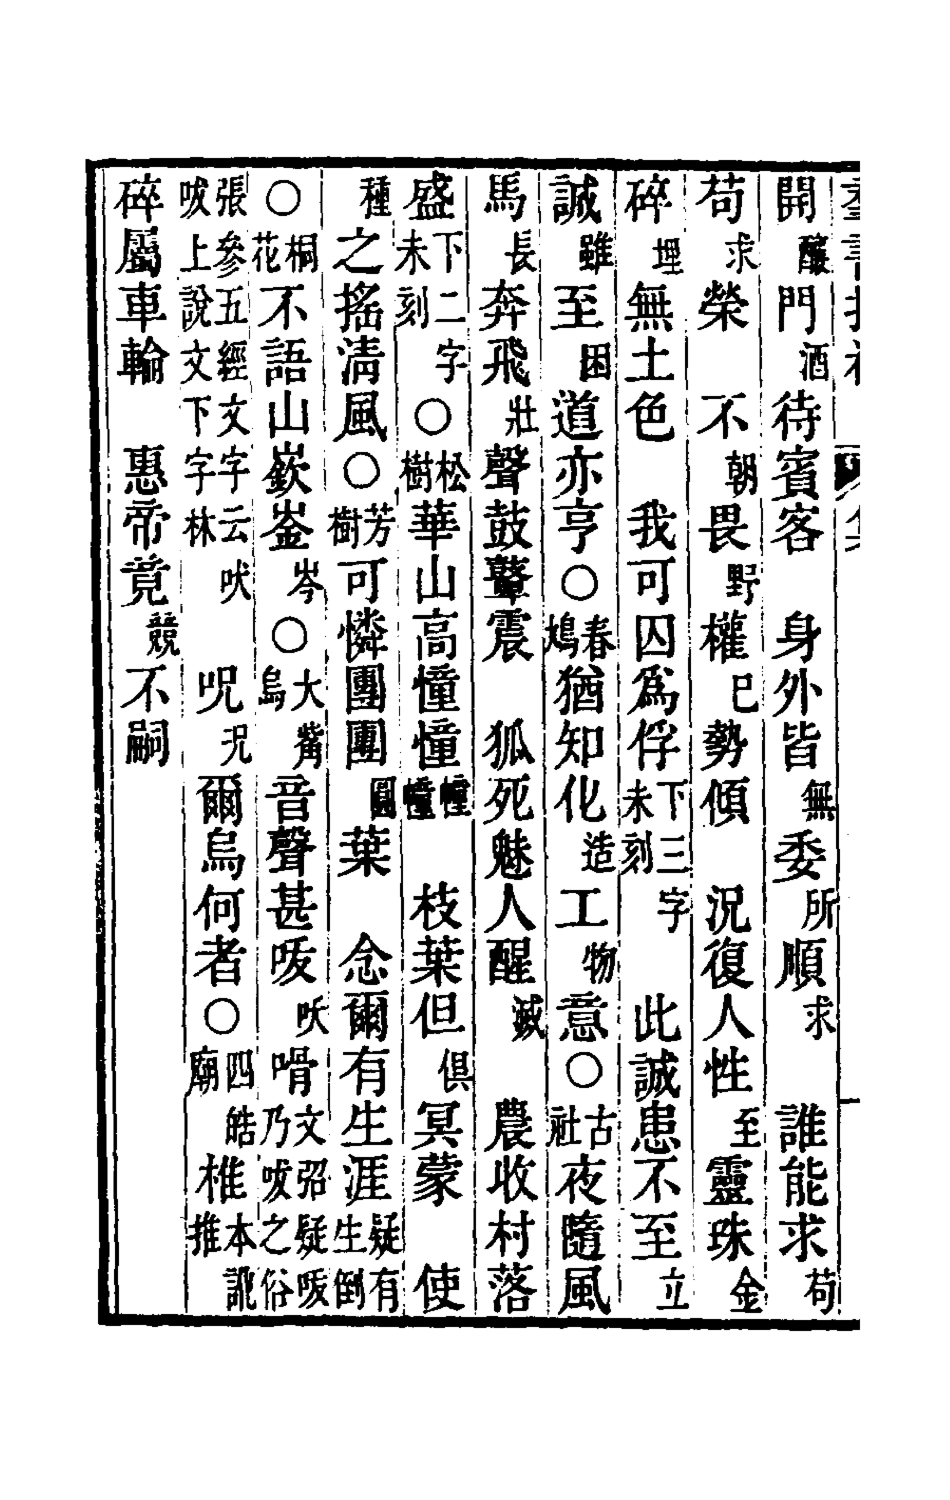 開釀門酒待賓客　身外皆無委所順求　誰能求苟
苟求榮　不朝畏野權已勢傾　況復人性至靈珠金
碎埋無土色　我可囚爲俘下三字未刻　此誠患不至立
誠雖至困道亦亨○春鳩猶知化造工物意○古社夜隨風
馬長奔飛壯聲鼓鼙震　狐死魅人醒滅　農收村落
盛下二字未刻○松樹華山高憧憧幢幢　枝葉但俱冥蒙　使
種之搖淸風○芳樹可憐團團圓葉　念爾有生涯疑有生倒
○桐花不語山嶔崟岑○大觜烏音聲甚㕹吠啃文弨疑㕹乃㕹之俗
張參五經文字云吠㕹上說文下字林　呪况爾烏何者○四皓廟椎本訛推
碎屬車輪　惠帝竟競不嗣